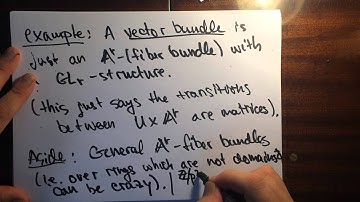 example: A vector bundle is
just an 𝔸ʳ-(fiber bundle) with
GLᵣ-structure.
(this just says the transitions
between U×𝔸ʳ are matrices).
Aside: General 𝔸ʳ-fiber bundles
(i.e. over rings which are not domains
can be crazy).